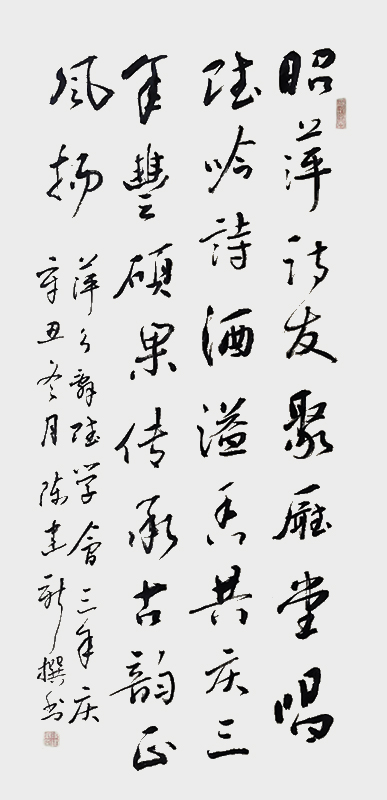 昭萍诗友聚廳堂唱
陆吟詩酒溢香共庆三
年豐硕果传承古韵正
風扬
萍乡辭陆学會三年庆
辛丑冬月陈建新撰书